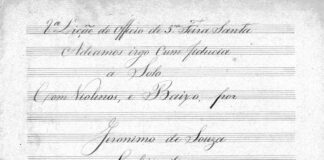 8ª Lição do Officio de 5ª Feira Santa
Adeamos ergo Cum fiducia
a Solo
Com Violinos, e Baixo, por
Jeronimo de Souza